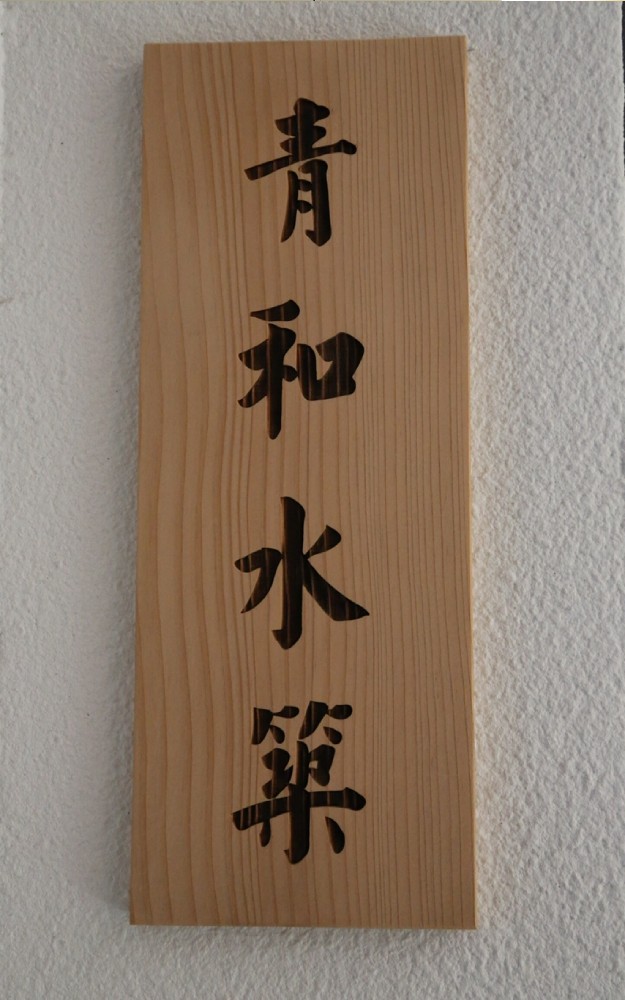 青和水築